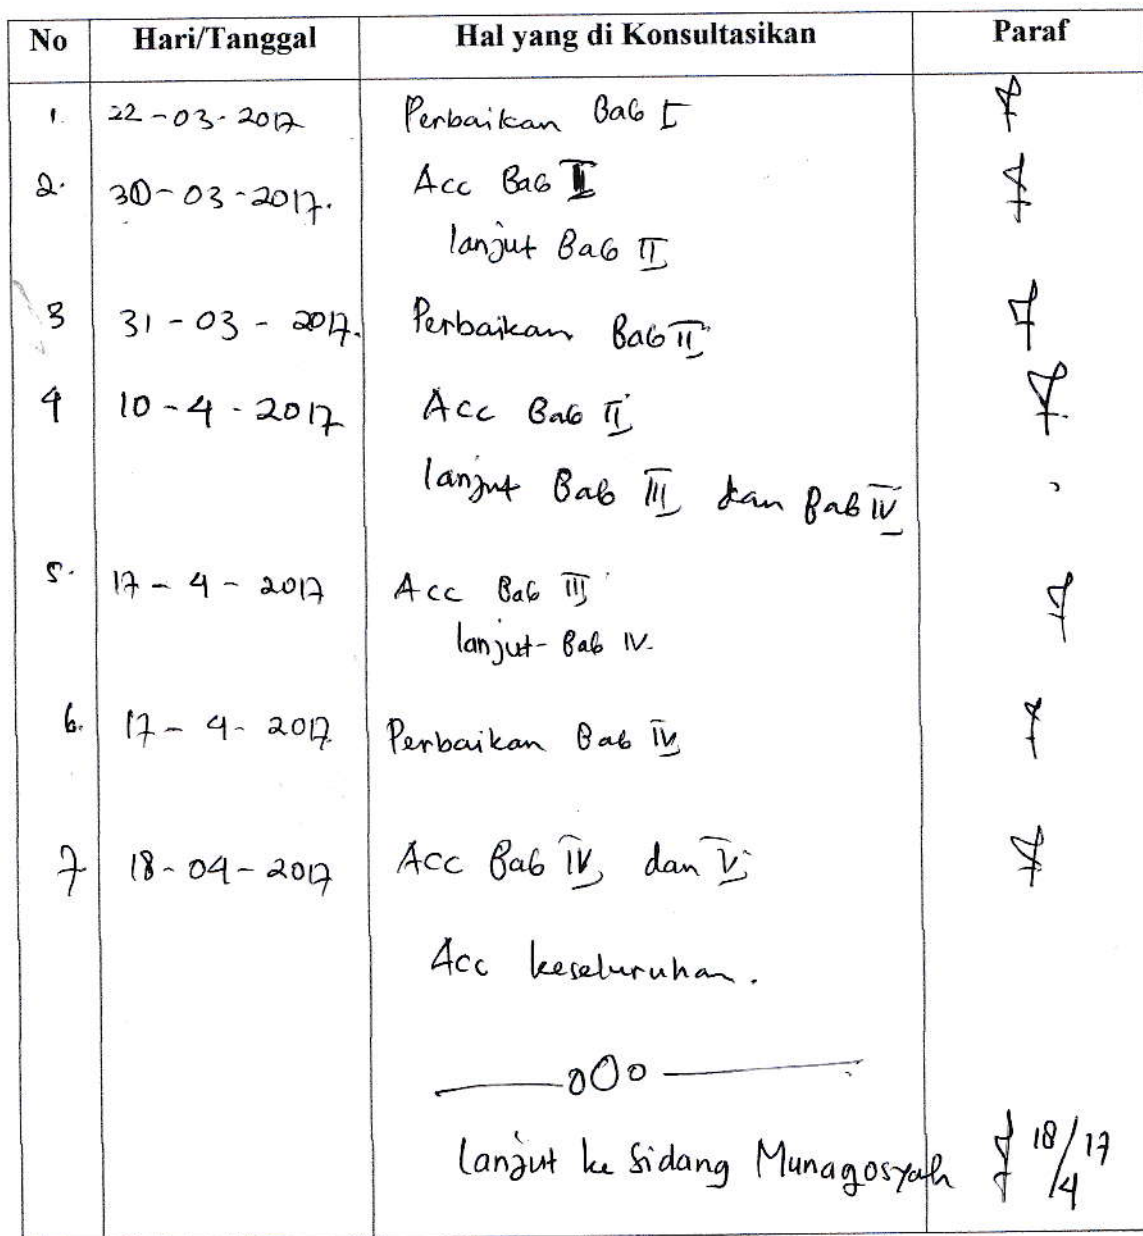 No Hari/Tanggal Hal yang di Konsultasikan Paraf
1. 22-03-2017 Perbaikan Bab I
2. 30-03-2017. Acc Bab I
lanjut Bab II
3 31-03-2017. Perbaikan Bab II
4 10-4-2017 Acc Bab II
lanjut Bab III dan Bab IV
5. 17-4-2017 Acc Bab III
lanjut-Bab IV.
6. 17-4-2017 Perbaikan Bab IV
7 18-04-2017 Acc Bab IV dan V
Acc keseluruhan.
oOo
lanjut ke Sidang Munagosyah 18/4 17